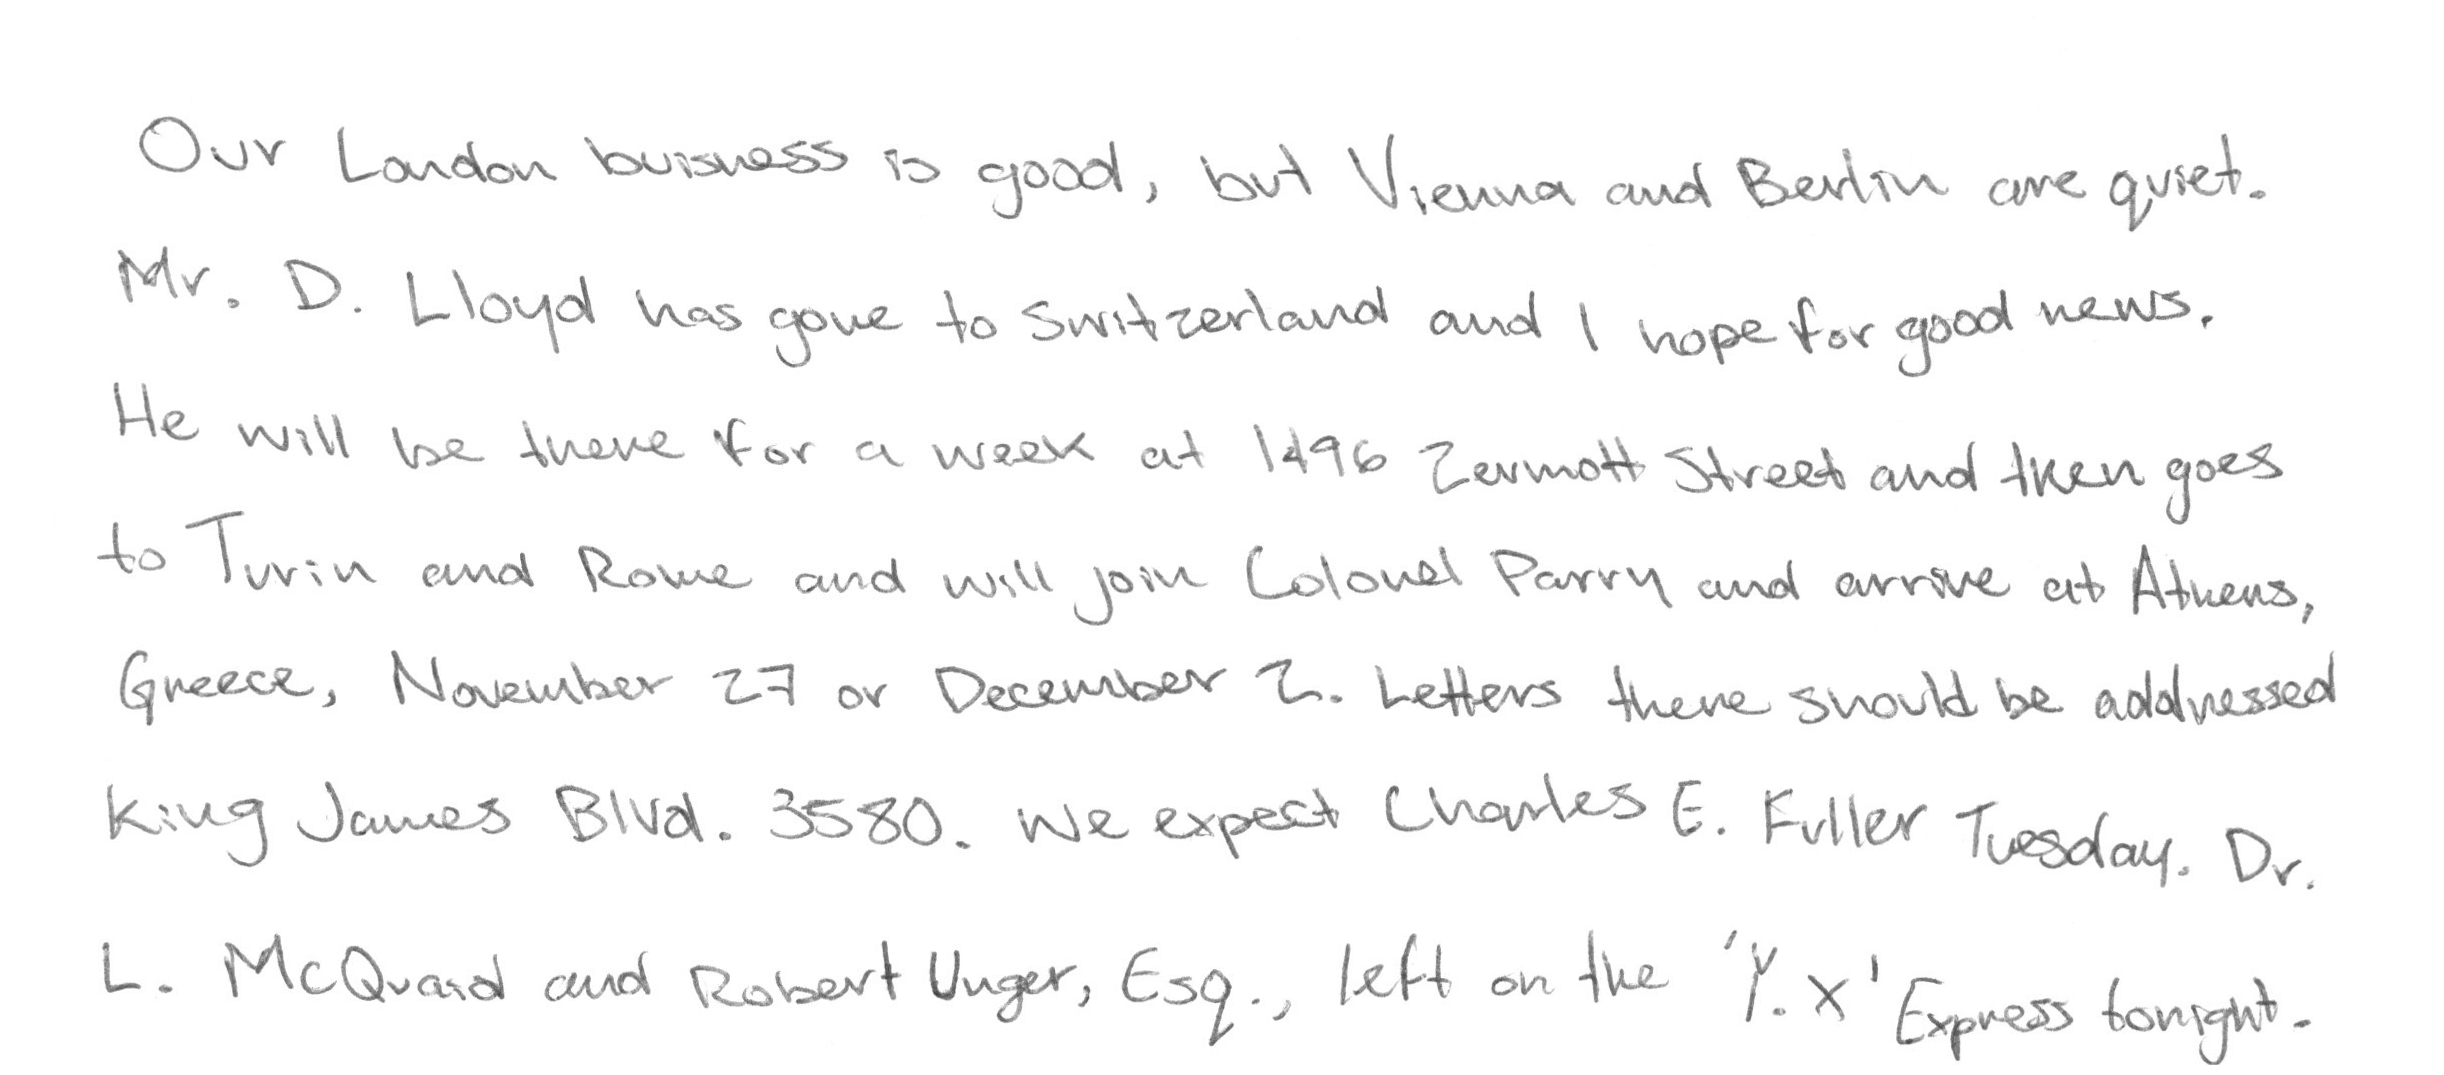 Our London buisness is good, but Vienna and Berlin are quiet.
Mr. D. Lloyd has gone to Switzerland and I hope for good news.
He will be there for a week at 1496 Zermott Street and then goes
to Turin and Rome and will join Colonel Parry and arrive at Athens,
Greece, November 27 or December 2. Letters there should be addressed
King James Blvd. 3580. We expect Charles E. Fuller Tuesday. Dr.
L. McQuaid and Robert Unger, Esq., left on the 'Y.X' Express tonight.